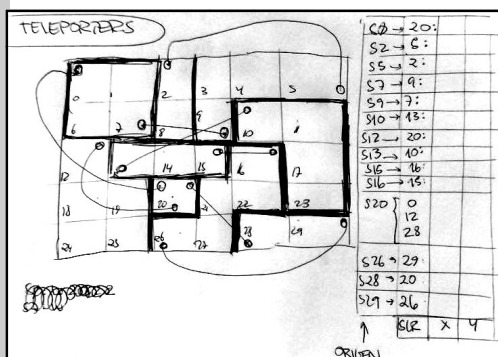 TELEPORTERS
0 1 2 3 4 5
6 7 8 9 10 11
12 14 15 16 17
18 19 20 21 22 23
24 25 26 27 28 29
S0 → 20:
S2 → 5:
S5 → 2:
S7 → 9:
S9 → 7:
S10 → 13:
S12 → 20:
S13 → 10:
S15 → 16:
S16 → 15:
S20 { 0
12
28
S26 → 29:
S28 → 20
S29 → 26
SCR X Y
ORIGEN